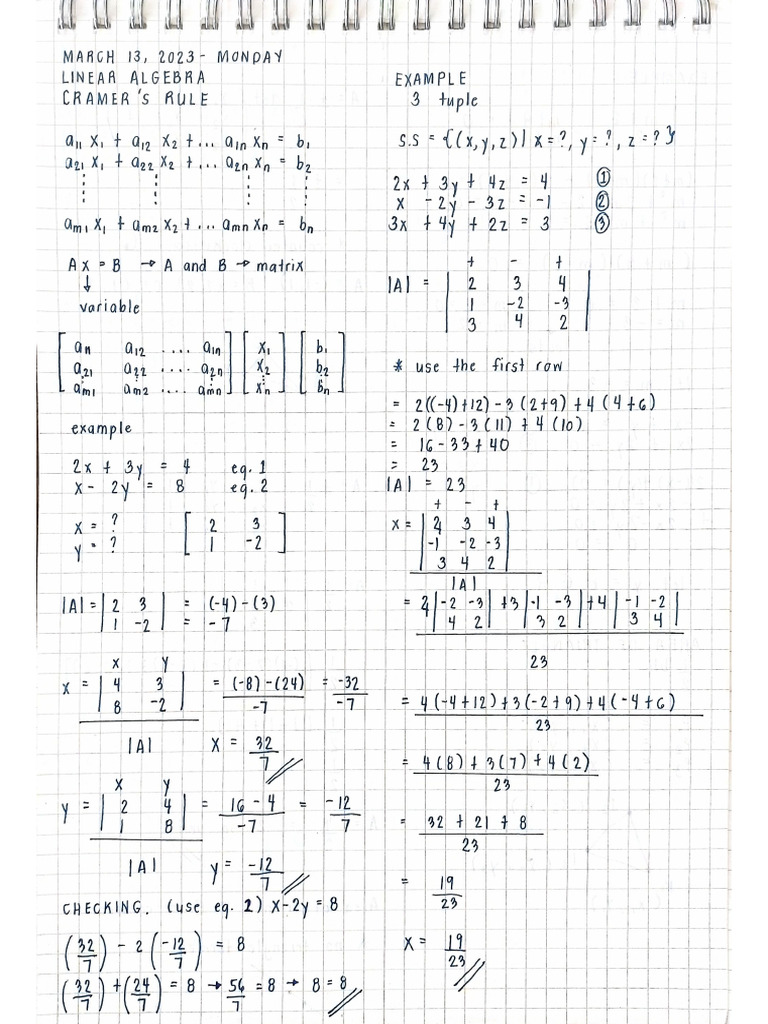 MARCH 13, 2023 - MONDAY
LINEAR ALGEBRA
CRAMER'S RULE
a11 x1 + a12 x2 + ... a1n xn = b1
a21 x1 + a22 x2 + ... a2n xn = b2
⋮ ⋮ ⋮ ⋮
am1 x1 + am2 x2 + ... amn xn = bn
Ax = B → A and B → matrix
↓
variable
[ a11 a12 .... a1n ] [ x1 ] [ b1 ]
[ a21 a22 .... a2n ] [ x2 ] [ b2 ]
[ am1 am2 .... amn ] [ xn ] [ bn ]
example
2x + 3y = 4 eq. 1
x - 2y = 8 eq. 2
x = ? [ 2 3 ]
y = ? [ 1 -2 ]
|A| = | 2 3 | = (-4)-(3)
| 1 -2 | = -7
x y
x = | 4 3 | = (-8)-(24) = -32
| 8 -2 | -7 -7
|A| x = 32
7
x y
y = | 2 4 | = 16 - 4 = -12
| 1 8 | -7 7
|A| y = -12
7
CHECKING. (use eq. 2) x-2y = 8
(32/7) - 2 (-12/7) = 8
(32/7) + (24/7) = 8 → 56/7 = 8 → 8 = 8
EXAMPLE
3 tuple
S.S = {(x,y,z)| x=?, y=?, z=?}
2x + 3y + 4z = 4 ①
x - 2y - 3z = -1 ②
3x + 4y + 2z = 3 ③
+ - +
|A| = | 2 3 4 |
| 1 -2 -3 |
| 3 4 2 |
* use the first row
= 2((-4)+12) - 3 (2+9) + 4 (4+6)
= 2(8) - 3(11) + 4(10)
= 16 - 33 + 40
= 23
|A| = 23
+ - +
x = | 4 3 4 |
| -1 -2 -3 |
| 3 4 2 |
|A|
= 4 | -2 -3 | + 3 | -1 -3 | + 4 | -1 -2 |
| 4 2 | | 3 2 | | 3 4 |
23
= 4(-4+12)+3(-2+9)+4(-4+6)
23
= 4(8) + 3(7) + 4(2)
23
= 32 + 21 + 8
23
= 19
23
x = 19
23